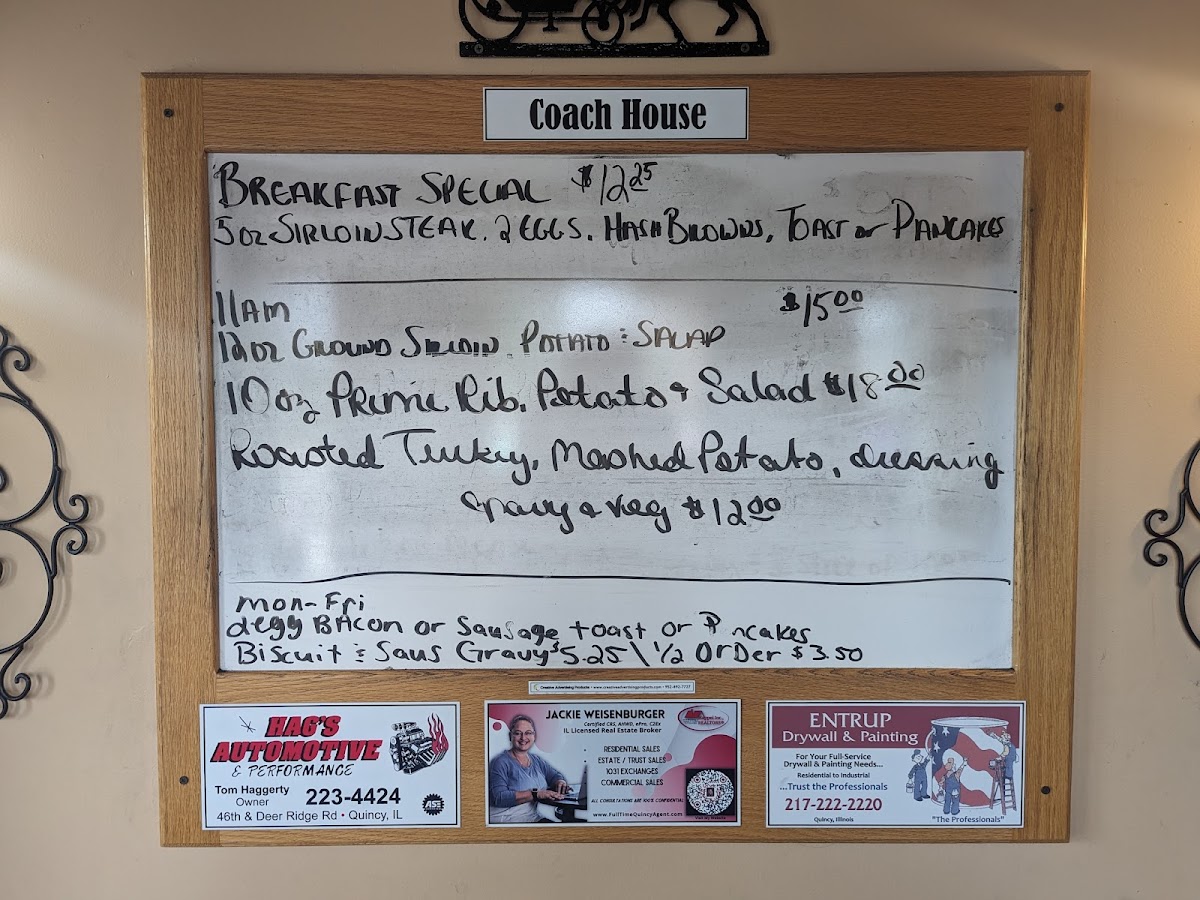 Coach House
BREAKFAST SPECIAL $12.25
5oz SIRLOIN STEAK. 2 EGGS. HASH BROWNS, TOAST or PANCAKES
11AM $15.00
12oz GROUND SIRLOIN. POTATO & SALAD
10oz Prime Rib. Potato & Salad $18.00
Roasted Turkey, Mashed Potato, dressing
Gravy & veg $12.00
Mon-Fri
2egg BACon or SauSage toast or P ncakes
Biscuit & Saus Gravy $5.25 \ 1/2 OrDer $3.50
Creative Advertising Products • www.creativeadvertisingproducts.com • 952-890-7727
HAG'S
AUTOMOTIVE
& PERFORMANCE
Tom Haggerty
Owner
223-4424
ASE
46th & Deer Ridge Rd • Quincy, IL
JACKIE WEISENBURGER
Certified CRS, AHWD, ePro, C2Ex
IL Licensed Real Estate Broker
RESIDENTIAL SALES
ESTATE / TRUST SALES
1031 EXCHANGES
COMMERCIAL SALES
ALL CONSULTATIONS ARE 100% CONFIDENTIAL
www.FullTimeQuincyAgent.com
Visit My Website
ENTRUP
Drywall & Painting
For Your Full-Service
Drywall & Painting Needs...
Residential to Industrial
...Trust the Professionals
217-222-2220
Quincy, Illinois
"The Professionals"